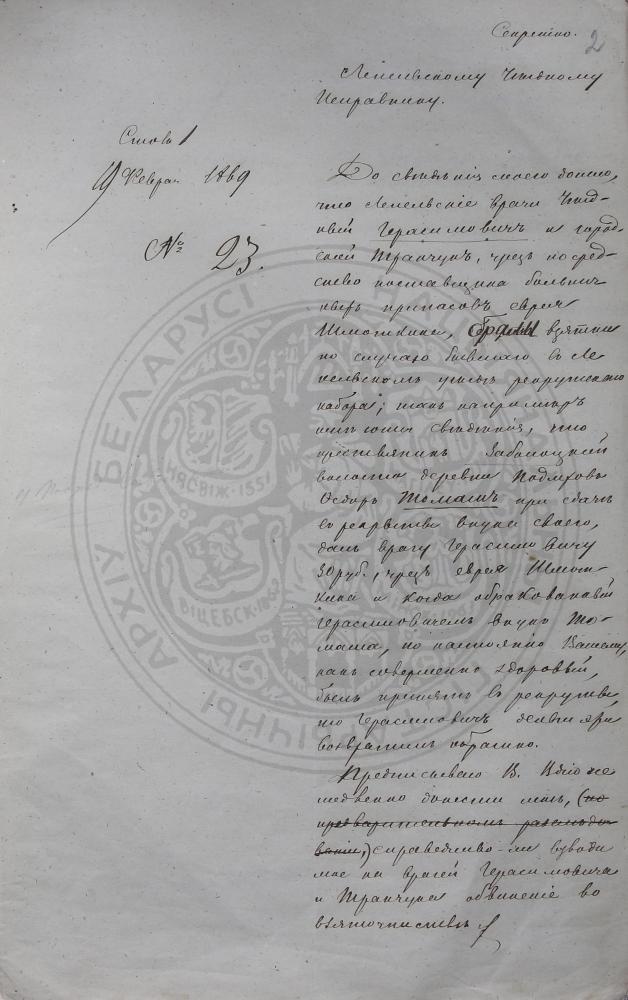 Секретно.
2
Лепельскому Уѣздному
Исправнику.
Столъ 1
19 Февраля 1869
№ 23.
До свѣдѣнія моего дошло,
что Лепельскіе врачи Уѣзд-
ный Герасимовичъ и город-
ской Транчукъ, чрезъ посред-
ство поставщика больнич
ныхъ припасовъ еврея
Шмоткина, брали взятки
по случаю бывшаго въ Ле
пельскомъ уѣздѣ рекрутскаго
набора; такъ напримѣръ
свѣдѣнія, что
крестьянинъ Заболоцкой
волости деревни
Томашъ при сдачѣ
въ рекруты внука своего,
далъ врачу Герасимовичу
30 руб., чрезъ еврея Шмот-
кина и когда обракованный
Герасимовичемъ внукъ То-
маша, по настоянію
какъ совершенно здоровый,
былъ принятъ въ рекруты
то Герасимовичъ деньги
возвратилъ обратно.
Предписываю В. Вблю не
медленно донести мнѣ, (по
предварительномъ разслѣдо
ваніи,) справедливо-ли взводи
мое на врачей Герасимовича
и Транчука обвиненіе во
взяточничествѣ
БЕЛАРУСІ
АРХІЎ
ГІСТАРЫЧНЫ
НЯСВІЖ·1551
ВІЦЕБСК·